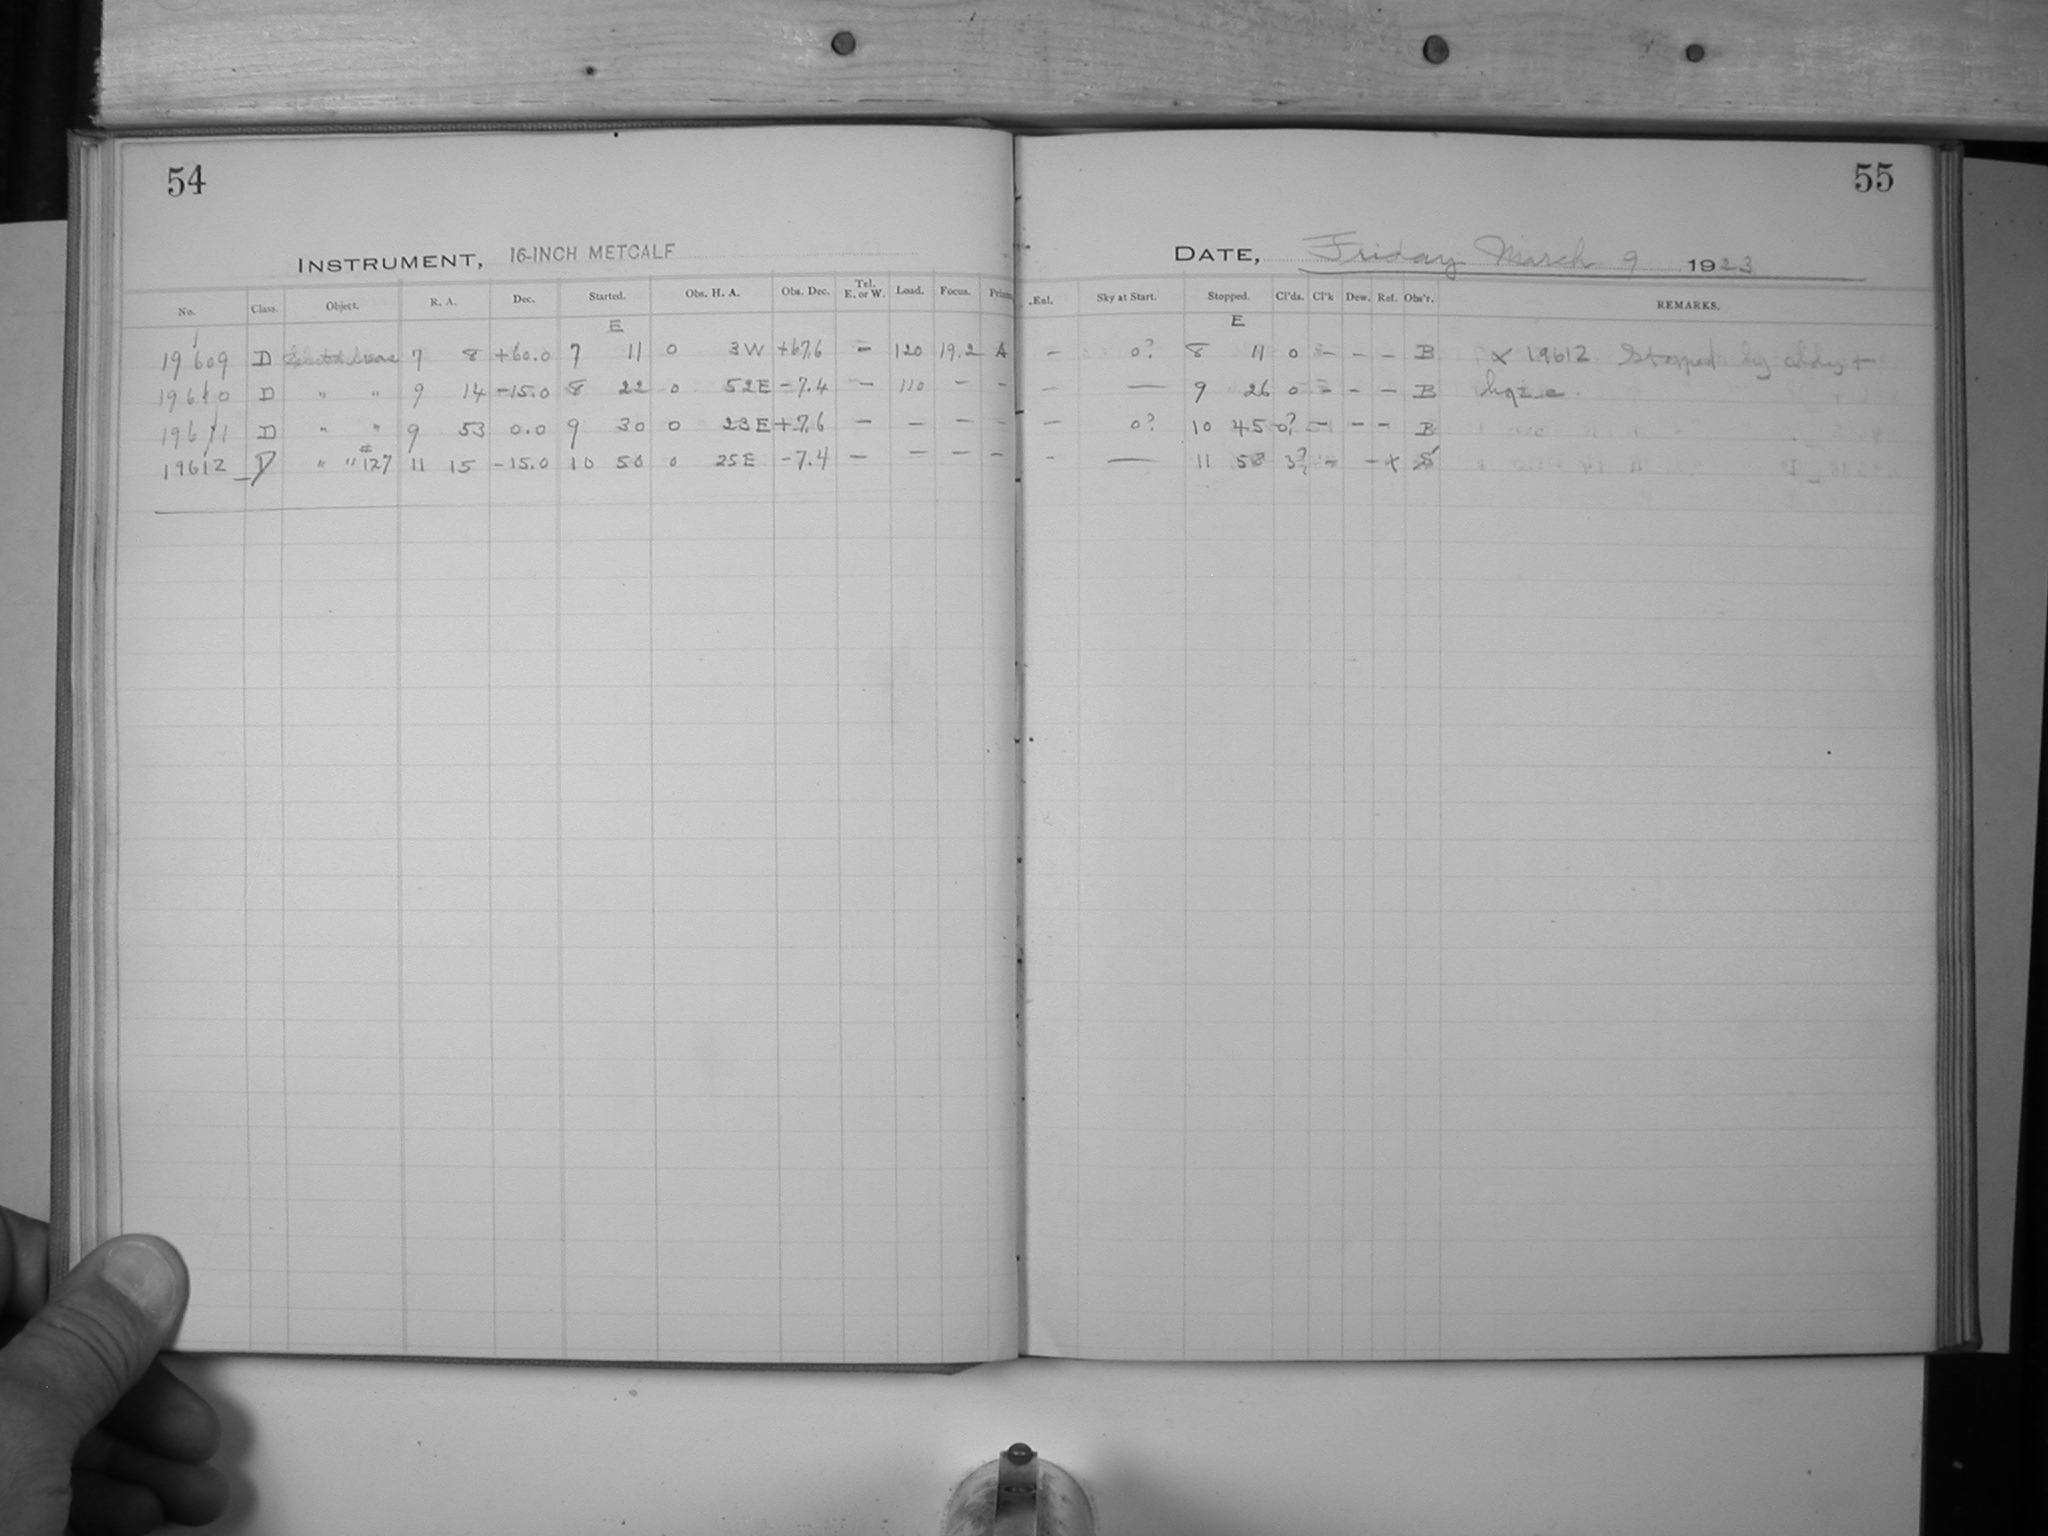 54
INSTRUMENT, 16-INCH METCALF
No. Class. Object. R. A. Dec. Started. Obs. H. A. Obs. Dec. Tel. E. or W. Load. Focus.
E
19609 D 7 8 +60.0 7 11 0 3W +67.6 - 120 19.2 A
19610 D " " 9 14 -15.0 8 22 0 52E -7.4 - 110 - -
19611 D " " 9 53 0.0 9 30 0 23E +7.6 - - - -
19612 D " " #127 11 15 -15.0 10 50 0 25E -7.4 - - - -
55
DATE, Friday March 9 1923
Sky at Start. Stopped. Cl'ds. Cl'k Dew. Ref. Obs'r. REMARKS.
E
- 0? 8 11 0 - - - B x 19612 Stopped by cldy +
- — 9 26 0 - - - B haze.
- 0? 10 45 0? - - - B
- — 11 58 3? - - x